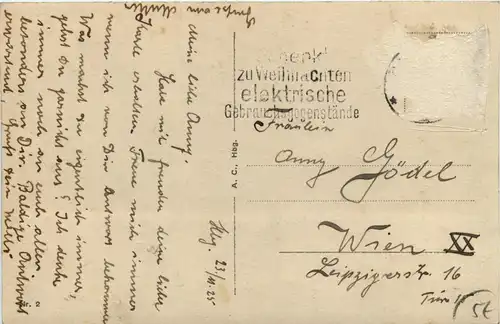 Grüsse von Mutter
Meine liebe Anny.
Habe mit Freuden deine liebe
Karte erhalten. Freue mich immer
wenn ich von Dir Antwort bekomme
Was machst du eigentlich immer,
gehst du garnicht aus? Ich denke
immer noch an euch allen u
besonders an Dir. Baldige Antwort
erwartend, Gruss dein
Hbg. 23/11.25
A. C., Hbg.
zu Weihnachten
elektrische
Gebrauchsgegenstände
Fräulein
Anny Gödel
Wien XX
Leipzigerstr. 16
Tür 11